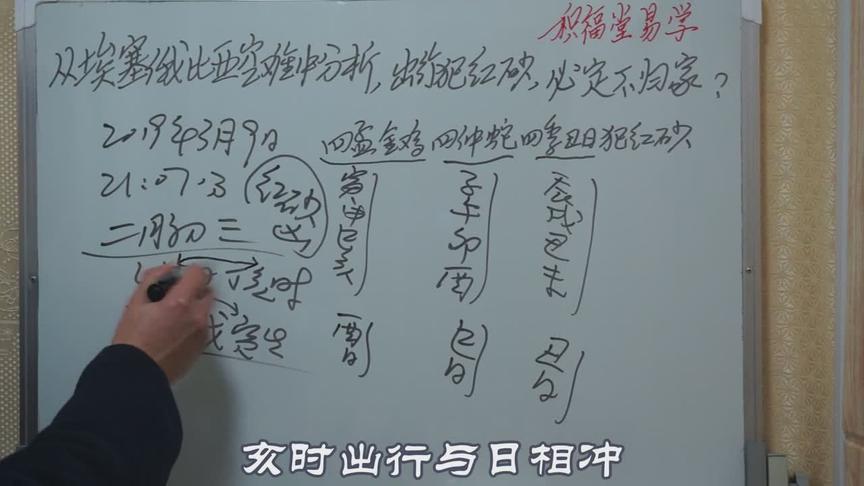 积福堂易学
从埃塞俄比亚空难中分析，出行犯红砂，必定不归家？
2019年3月9日
四孟金鸡 四仲蛇 四季丑日犯红砂
21:07分
红砂
二月初三
寅申巳亥
子午卯酉
辰戌丑未
时
酉日
巳日
丑日
亥时出行与日相冲